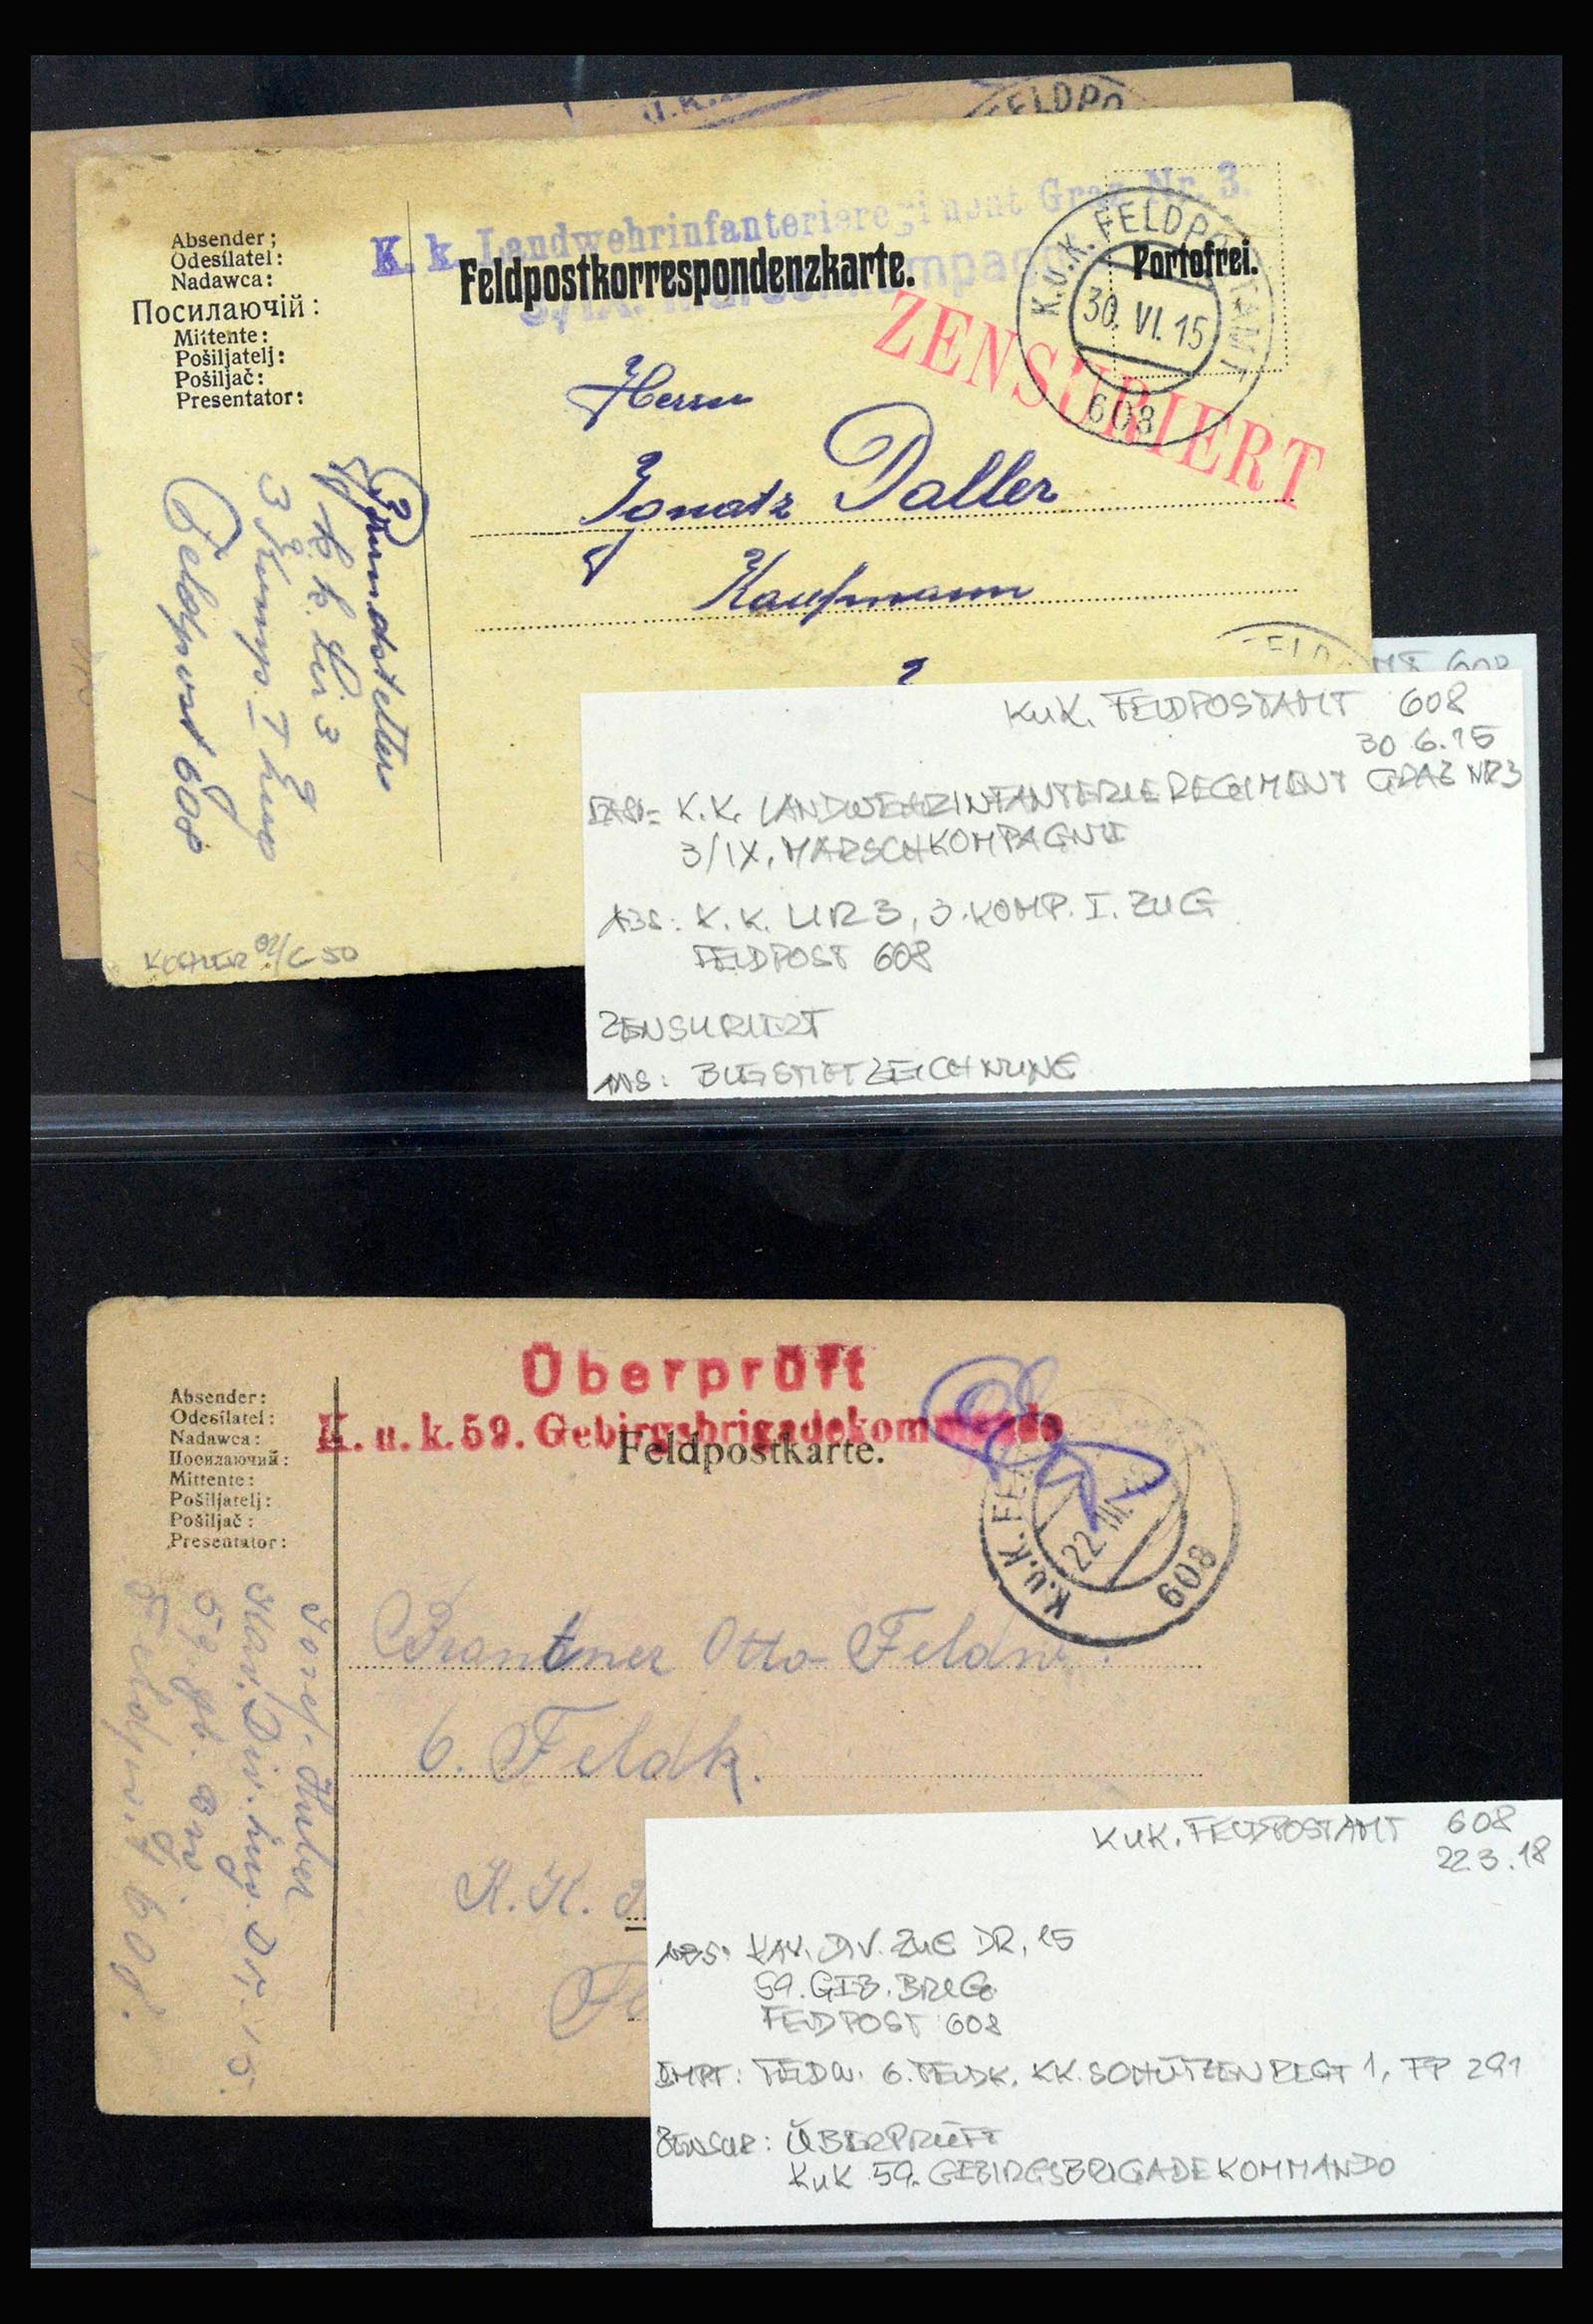 FELDPO
K. k. Landwehrinfanterieregiment Graz Nr. 3.
Absender:
Odesílatel:
Nadawca:
Посилаючій:
Mittente:
Pošiljatelj:
Pošiljač:
Presentator:
Feldpostkorrespondenzkarte.
Portofrei.
K.u.K. FELDPOSTAMT
30. VI. 15
608
ZENSURIERT
Herrn
Ignatz Daller
Kaufmann
k. k. Lir 3
3 Komp. I Zug
Feldpost 608
KUK. FELDPOSTAMT 608
30 6.15
K.K. LANDWEHRINFANTERIEREGIMENT GRAZ NR3
3/IX. MARSCHKOMPAGNIE
ABS: K.K. LIR 3, 3. KOMP. I. ZUG
FELDPOST 608
ZENSURIERT
ANS: BLEISTIFTZEICHNUNG
Überprüft
K. u. k. 59. Gebirgsbrigadekommando
Absender:
Odesílatel:
Nadawca:
Посилаючий:
Mittente:
Pošiljatelj:
Pošiljač:
Presentator:
Feldpostkarte.
K.u.K. FE
22. III.
608
Josef Huber
Kav. Div. Zug. Dr. 15.
59. Gb. Br.
Feldpost 608.
Brantner Otto Feldw.
6. Feldk.
K. K.
KUK. FELDPOSTAMT 608
22.3.18
ABS: KAV. DIV. ZUG DR. 15
59. GEB. BRIG
FELDPOST 608
EMPF: FELDW. 6. FELDK. KK. SCHÜTZENREGT 1, FP 291
ZENSUR: ÜBERPRÜFT
KUK 59. GEBIRGSBRIGADEKOMMANDO